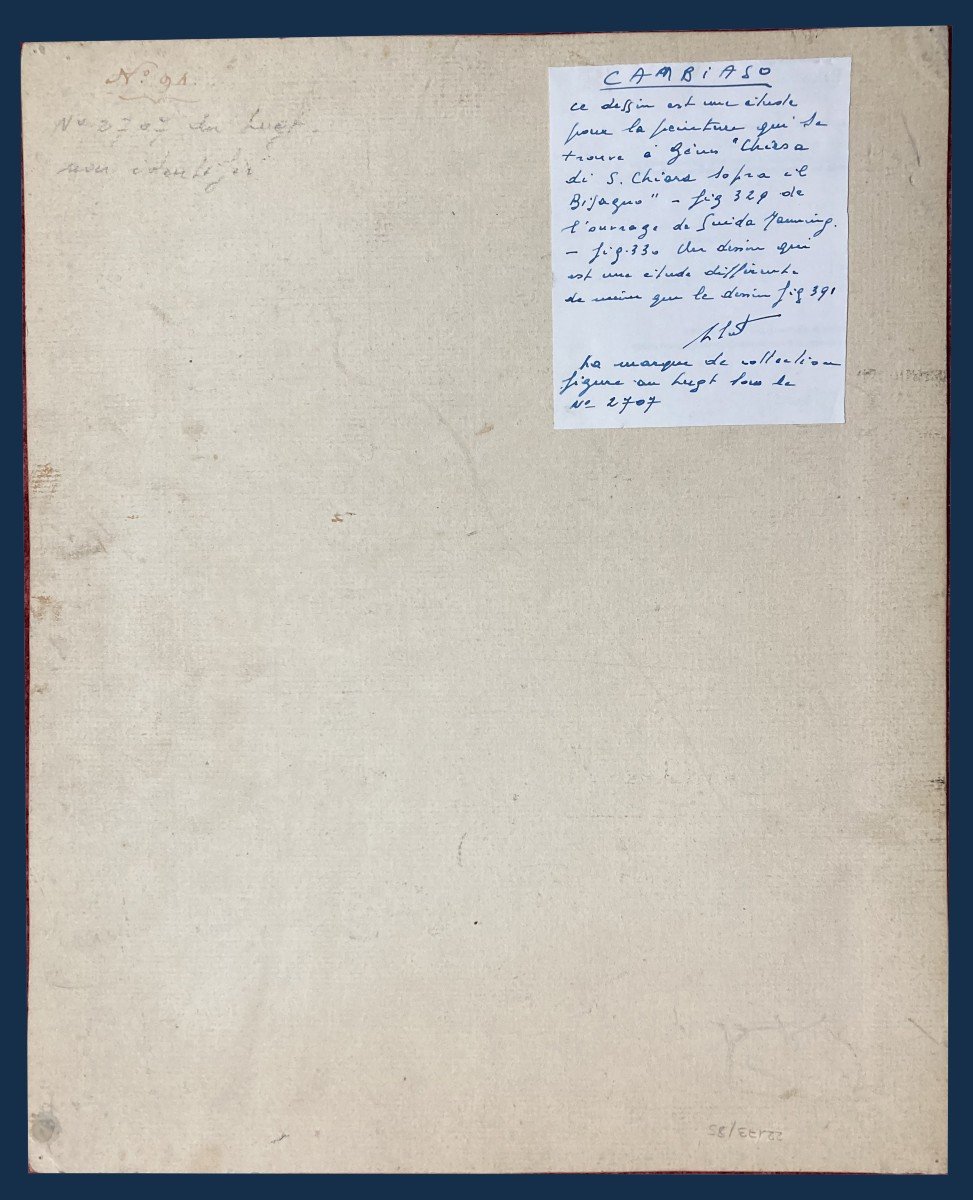 N° 91
N° 2707 du Lugt
non identifié
CAMBIASO
ce dessin est une étude
pour la peinture qui se
trouve à Gênes "Chiesa
di S. Chiara sopra il
Bisagno" - fig 329 de
l'ouvrage de Suida Manning.
- fig. 330 Un dessin qui
est une étude différente
de même que le dessin fig 391
La marque de collection
figure au Lugt sous le
N° 2707
22173/35